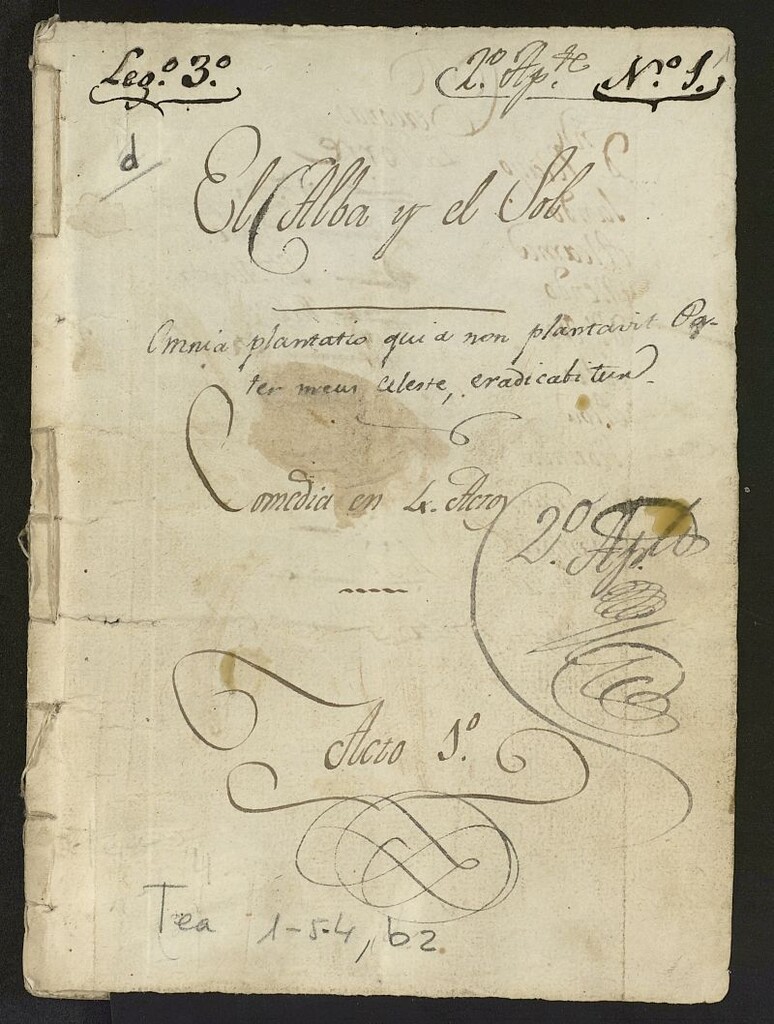 Leg.º 3.º
2.º Ap.te
N.º 1.
d
El Alba y el Sol
Omnia plantatio quia non plantavit Pa-
ter meus celeste, eradicabitur.
Comedia en 4. Actos
2.º Ap.te
Acto 1.º
Tea 1-5-4, b2